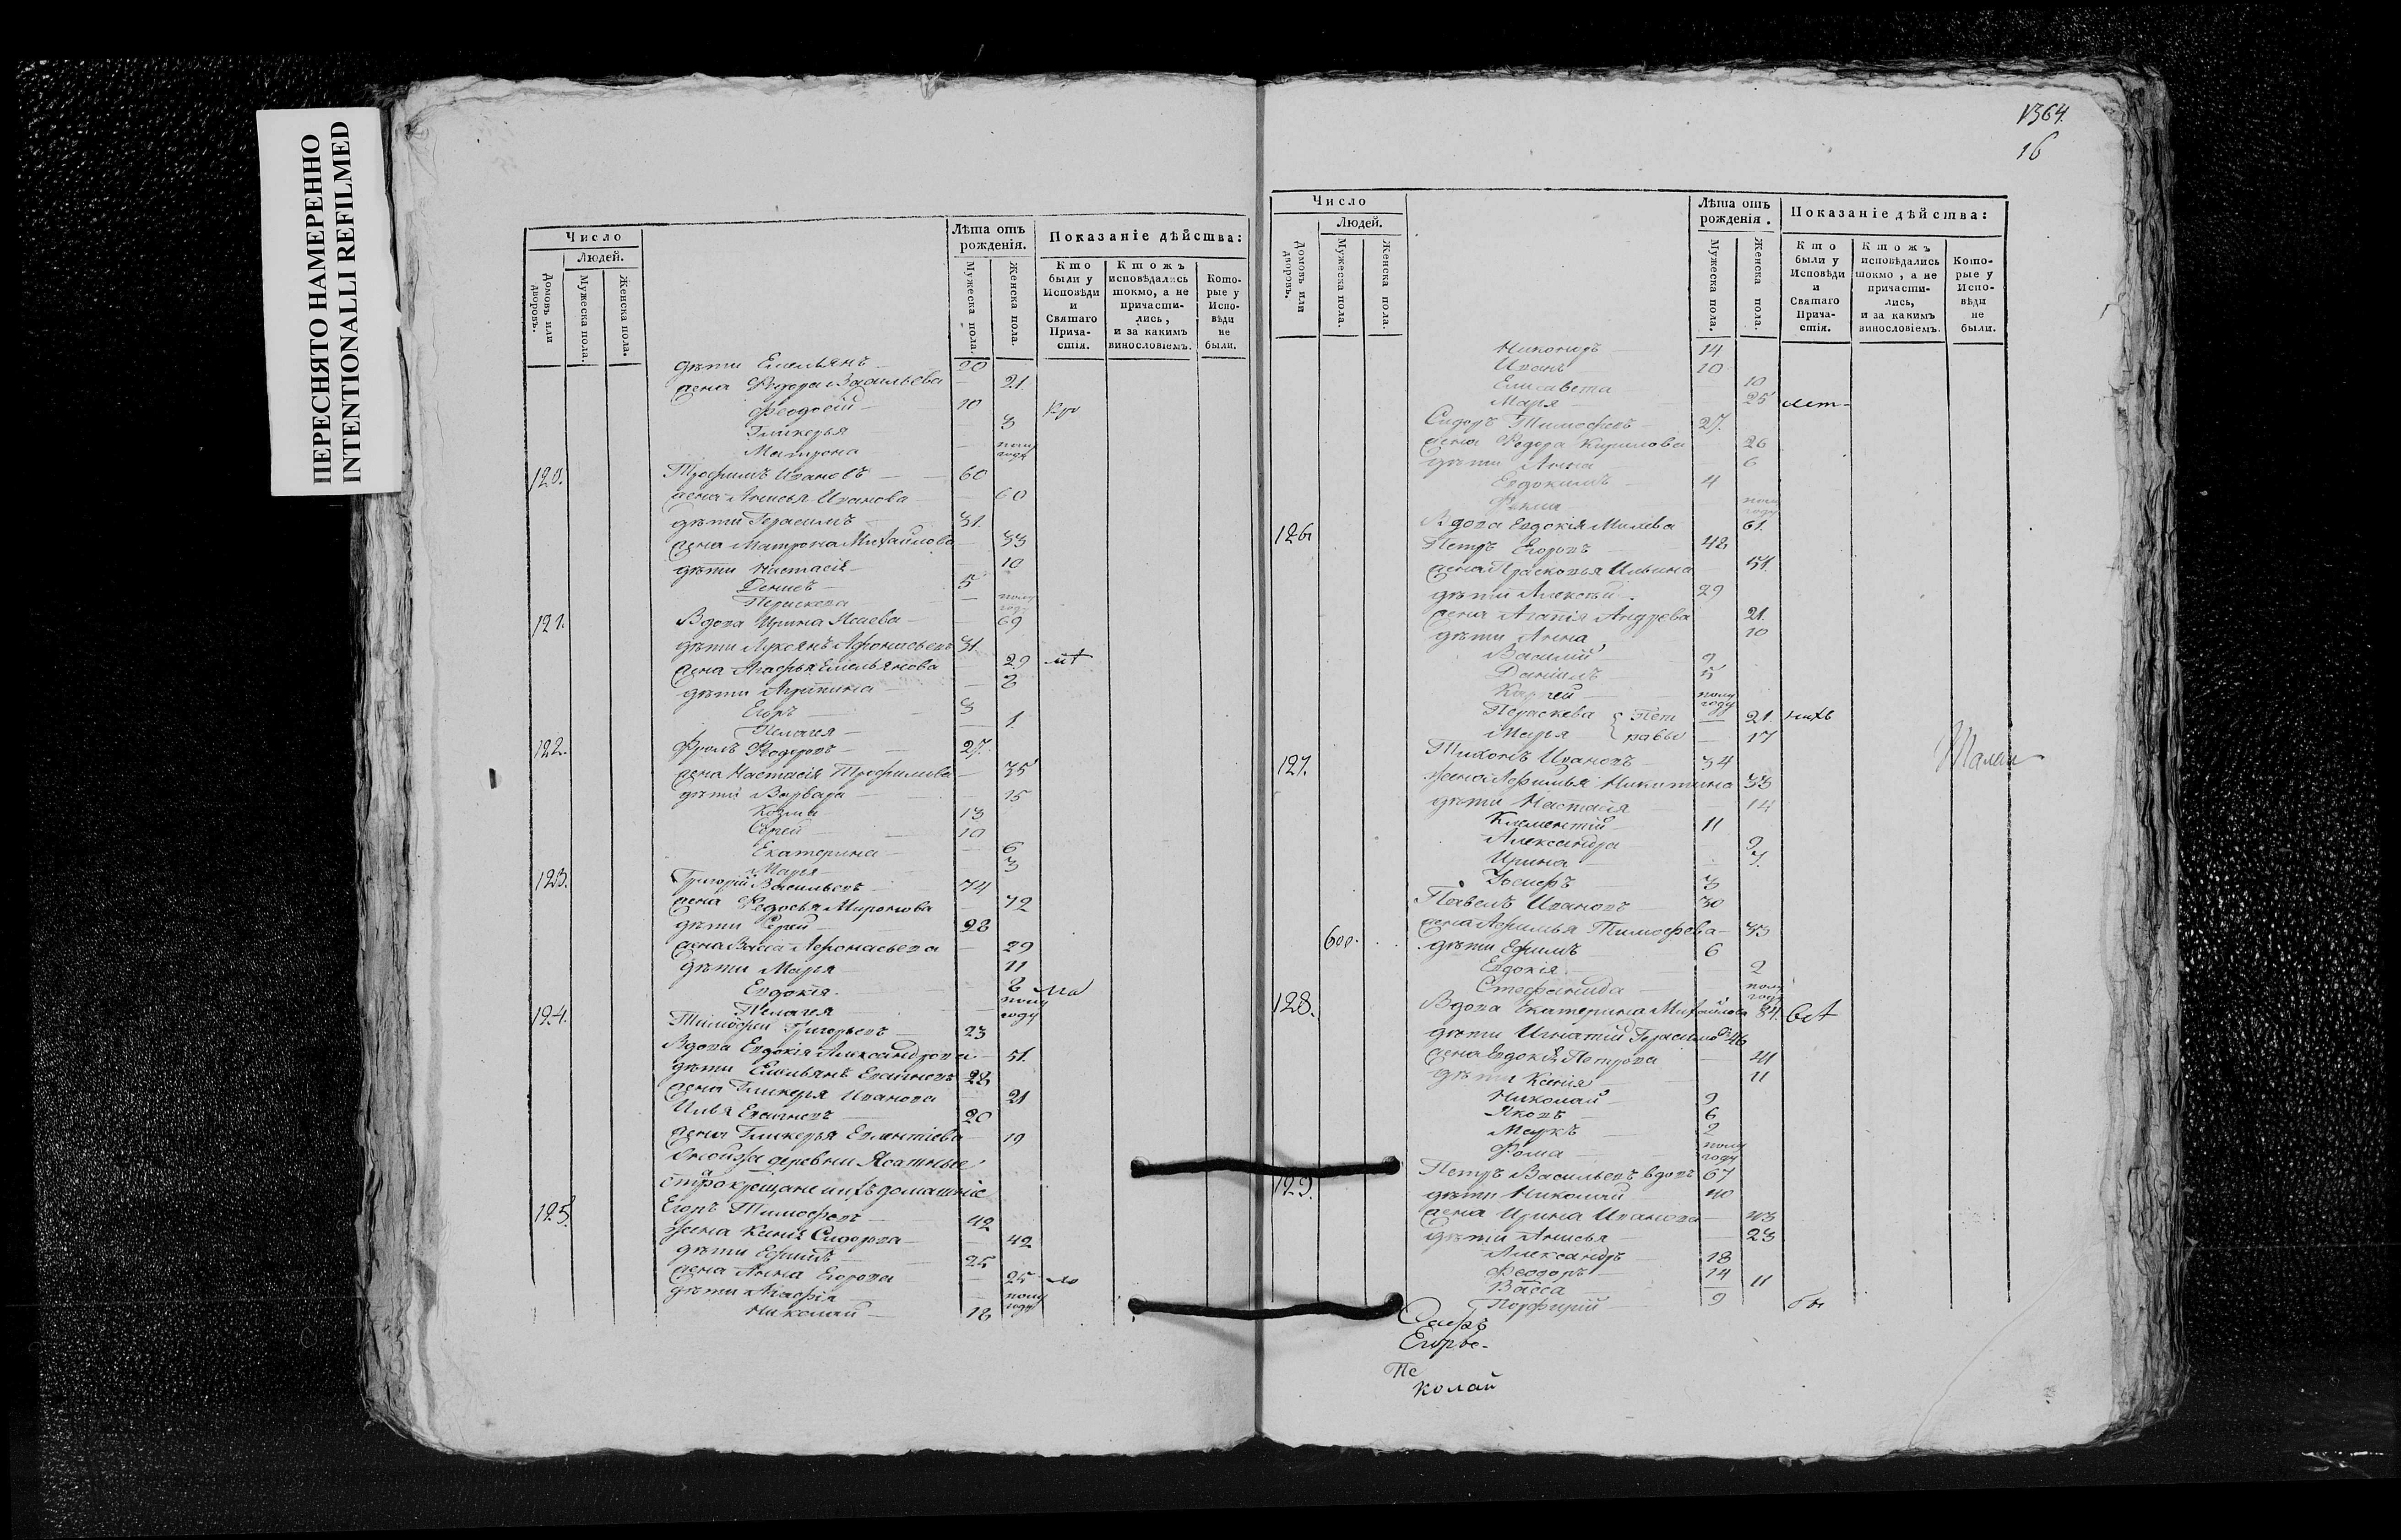 ПЕРЕСНЯТО НАМЕРЕННО
INTENTIONALLI REFILMED
Число
Людей.
Домовъ или дворовъ.
Мужеска пола.
Женска пола.
Лѣта отъ рожденія.
Мужеска пола.
Женска пола.
Показаніе дѣйства:
Кто были у Исповѣди и Святаго Причастія.
Ктожъ исповѣдались токмо, а не причастились, и за какимъ винословіемъ.
Которые у Исповѣди не были.
дѣти Емельянъ 20
жена Федора Васильева 21
Феодосій 10
Гликерья 3
Матрона полу году
120. Трофимъ Ивановъ 60
жена Анисья Иванова 60
дѣти Герасимъ 31
жена Матрона Михайлова 33
дѣти Настасія 10
Денисъ 5
Параскева полу году
121. Вдова Ирина Исаева 69
дѣти Луксянъ Афонасьевъ 31
жена Агафья Емельянова 29
дѣти Агрипина 8
Егоръ 3
Пелагея 1
122. Фролъ Федоровъ 27
жена Настасія Трофимова 35
дѣти Варвара 15
Козма 13
Сергей 10
Екатерина 6
Марья 3
123. Григорій Васильевъ 74
жена Федосья Миронова 72
дѣти Сергей 28
жена Васса Афонасьева 29
дѣти Марья 11
Евдокія 8
Пелагея полу году
124. Тимофей Григорьевъ 23
Вдова Евдокія Александрова 51
дѣти Емельянъ 28
жена Гликерья Иванова 21
Илья 20
жена Гликерья 19
деревни Ясашные
крещане ихъ домашніе
125. Егоръ Тимофеевъ 42
жена Ксенія Сидорова 42
дѣти Ефимъ 25
жена Анна Егорова 25
дѣти Агафія полу году
Николай 18
1364.
16
Число
Людей.
Домовъ или дворовъ.
Мужеска пола.
Женска пола.
Лѣта отъ рожденія.
Мужеска пола.
Женска пола.
Показаніе дѣйства:
Кто были у Исповѣди и Святаго Причастія.
Ктожъ исповѣдались токмо, а не причастились, и за какимъ винословіемъ.
Которые у Исповѣди не были.
Никоноръ 14
Иванъ 10
Елисавета 10
Марья 25
Сидоръ Тимофеевъ 27
жена Федора Кирилова 26
дѣти Анна 6
Евдокимъ 4
Фекла полу году
126. Вдова Евдокія 61
Петръ Егоровъ 48
жена Прасковья Ильина 51
дѣти Алексѣй 29
жена Агапія Андреева 21
дѣти Анна 10
Василій 9
Даніилъ 5
полу году
Параскева Пет 21
Марья ровы 17
127. Тихонъ Ивановъ 34
жена Афимья Никитина 33
дѣти Настасія 14
Климентій 11
Александра 9
Ирина 7
Іосифъ 3
Павелъ Ивановъ 30
жена Афимья Тимофеева 33
дѣти Ефимъ 6
Евдокія 2
Стефанида полу году
128. Вдова Екатерина Михайлова 84
дѣти Игнатій Герасимовъ 46
жена Евдокія Петрова 41
дѣти Ксенія 11
Николай 9
Яковъ 6
Маркъ 2
Фома полу году
129. Петръ Васильевъ вдовъ 67
дѣти Николай 40
жена Ирина Иванова 43
дѣти Анисья 23
Александръ 18
Феодоръ 14
Васса 11
Порфирій 9
колай